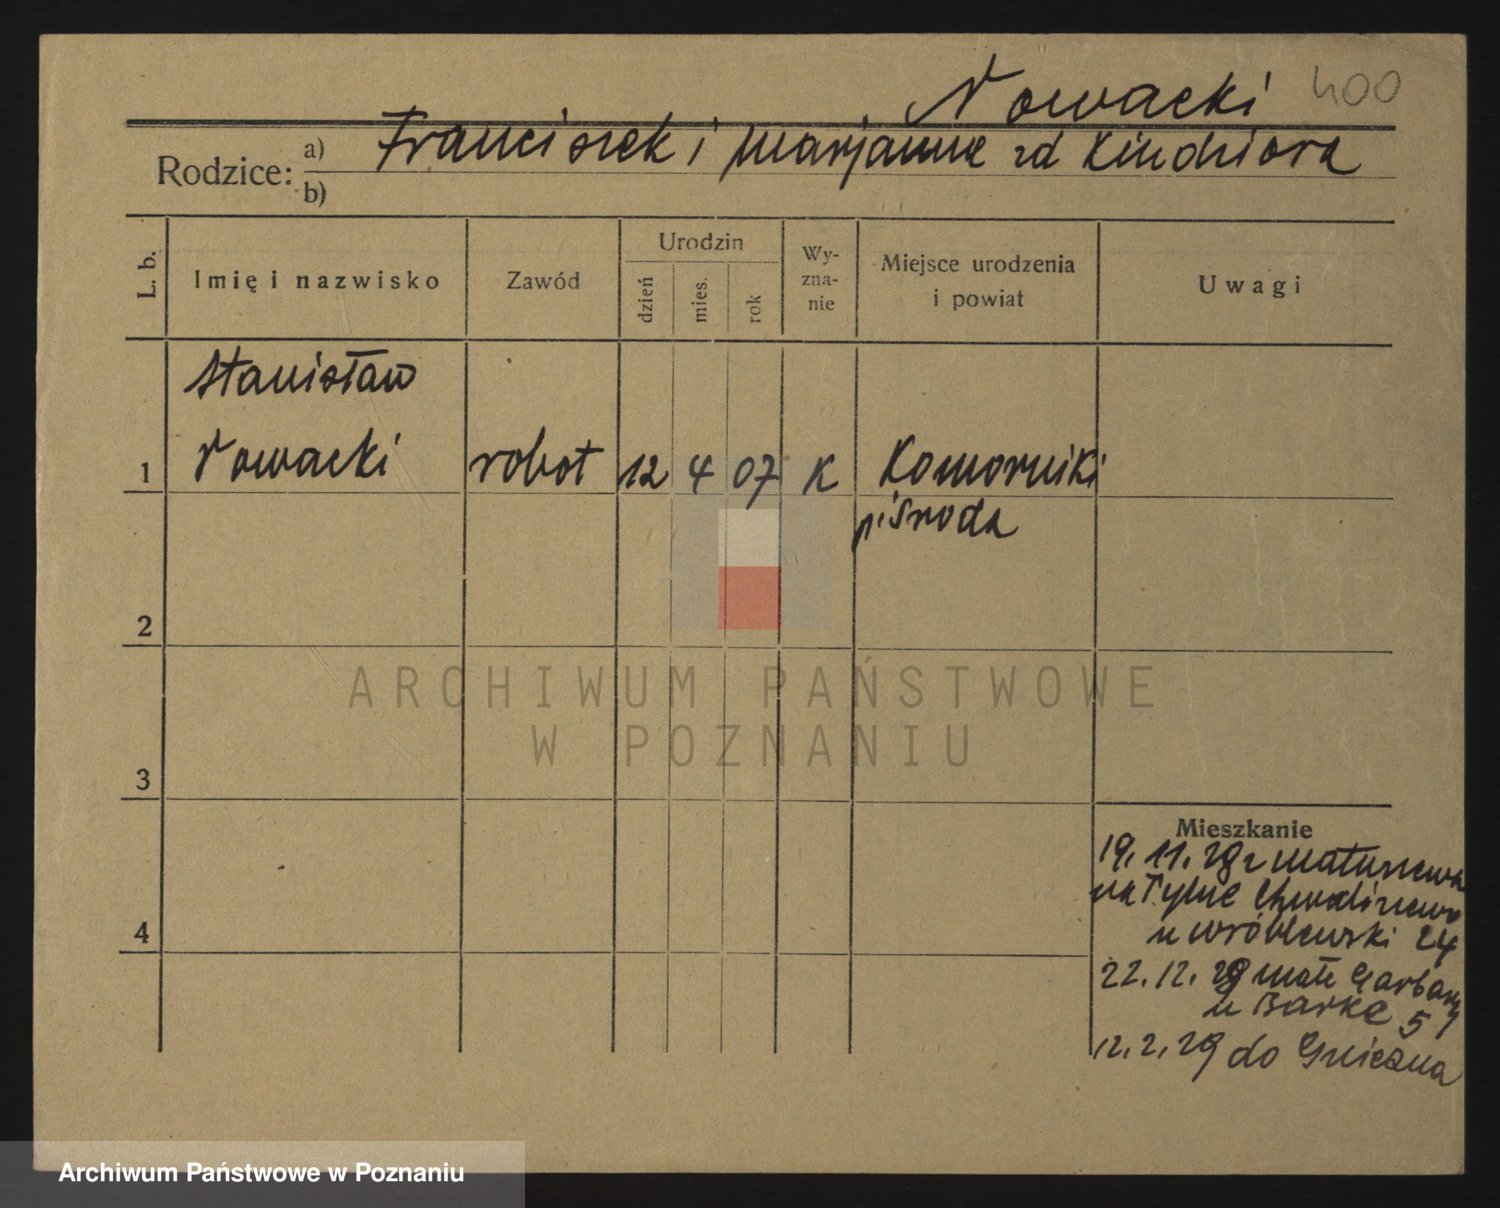 Nowacki 400
Rodzice: a) Franciszek i Marjanna zd Kindziora
b)
L. b. Imię i nazwisko Zawód Urodzin dzień mies. rok Wy-zna-nie Miejsce urodzenia i powiat Uwagi
Stanisław
1 Nowacki robot 12 4 07 K Komorniki
p. Środa
2
ARCHIWUM PAŃSTWOWE
W POZNANIU
3
Mieszkanie
19. 11. 28 z
na Tylne
4 u Wróblewski 24
22. 12. 28 Małe Garbary
u Barke 5
12. 2. 29 do Gniezna
Archiwum Państwowe w Poznaniu